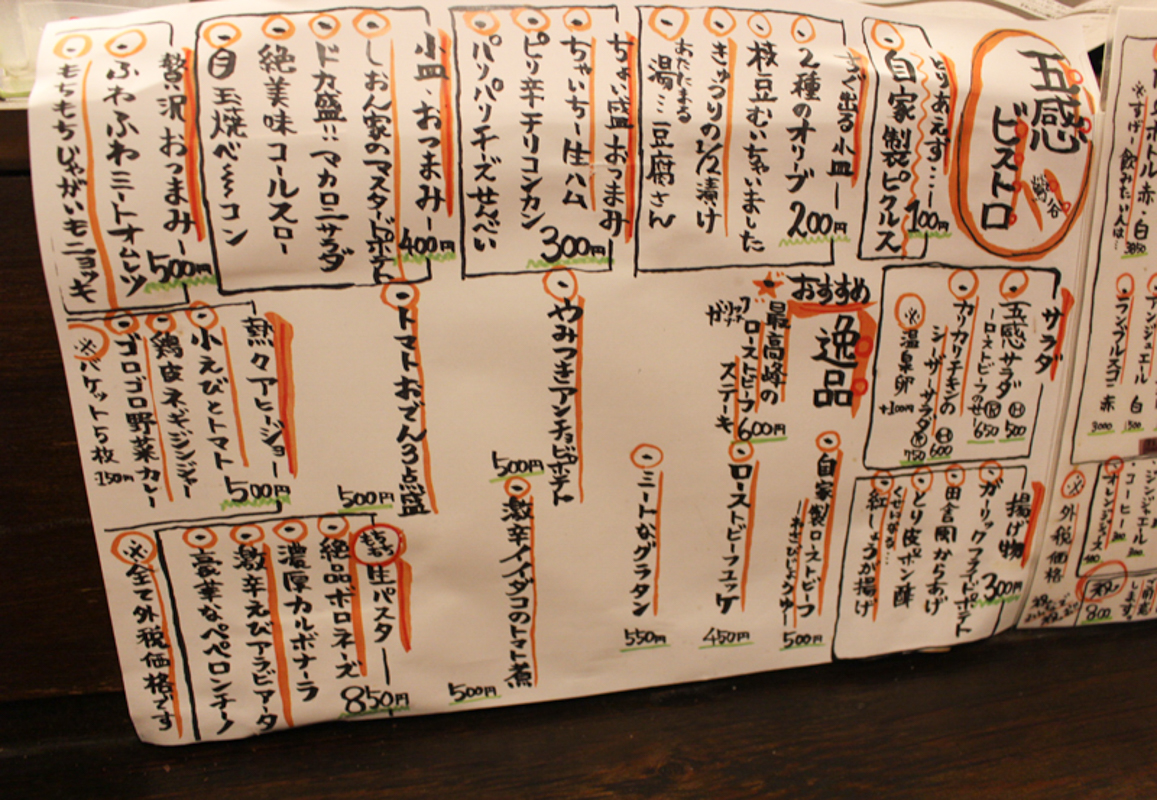 五感
ビストロ
とりあえず…
100円
自家製ピクルス
すぐ出る小皿ー
200円
2種のオリーブ
枝豆むいちゃいました
きゅうりの1/2漬け
あたたまる
湯豆腐さん
ちょい盛おつまみ
300円
ちゃいちー生ハム
ピリ辛チリコンカン
パリパリチーズせんべい
小皿・おつまみー
400円
しおん家のマスタードポテト
ドカ盛!!マカロニサラダ
絶美味コールスロー
玉焼ベーコン
贅沢おつまみー
500円
ふわふわミートオムレツ
もちもちじゃがいもニョッキ
サラダ
五感サラダ
500
ーローストビーフのせ
650
カリカリチキンの
シーザーサラダ
600
750
※温泉卵
+100円
おすすめ
逸品
最高峰の
ローストビーフ
ステーキ
600円
自家製ローストビーフ
ーわさびじょうゆー
500円
ローストビーフユッケ
450円
ミートなグラタン
550円
やみつきアンチョビポテト
500円
激辛イイダコのトマト煮
500円
トマトおでん3点盛
500円
熱々アヒージョー
500円
小えびとトマト
鶏皮ネギジンジャー
ゴロゴロ野菜カレー
※バケット5枚
150円
揚げ物
300円
ガーリックフライドポテト
田舎風からあげ
とり皮ポン酢
くせになる…
紅しょうが揚げ
もちもち
生パスター
850円
絶品ボロネーズ
濃厚カルボナーラ
激辛えびアラビアータ
豪華なペペロンチーノ
※全て外税価格です
赤・白
3850
アンジュエール 白
1500
ランブルスコ 赤
3000
ジンジャエール
コーヒー
300
オレンジジュース
※外税価格
800